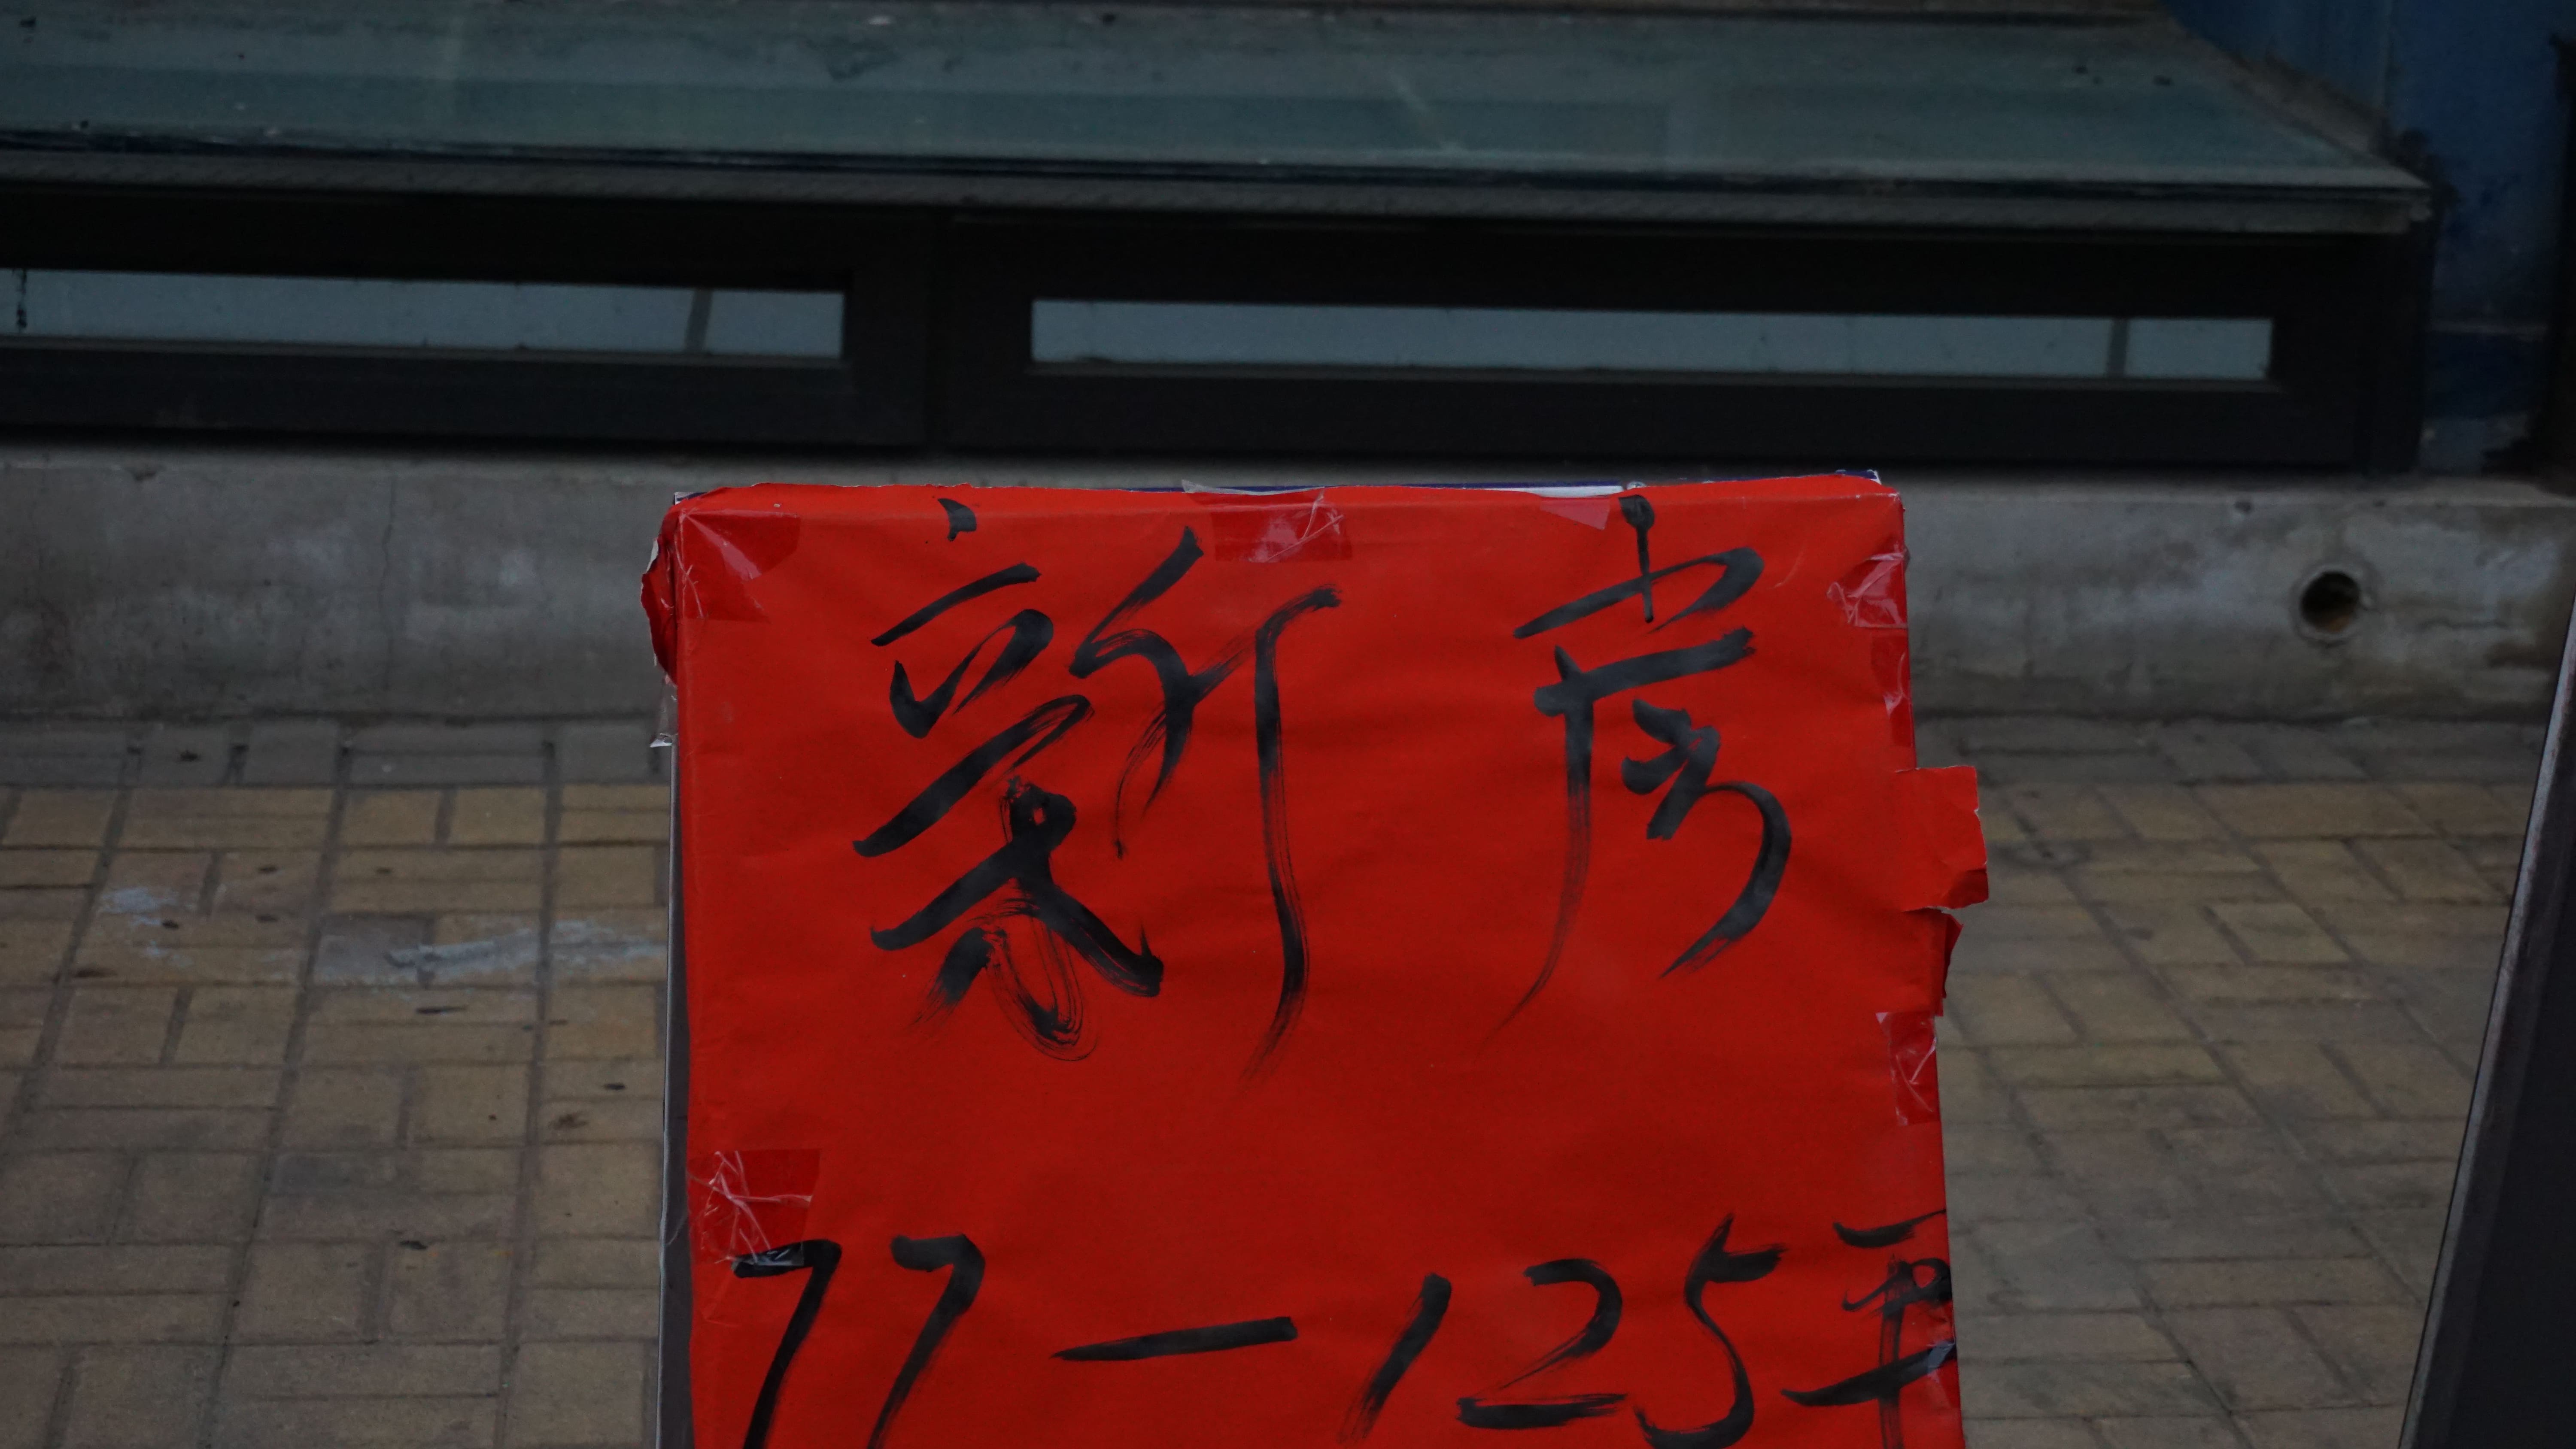 新房
77-125平